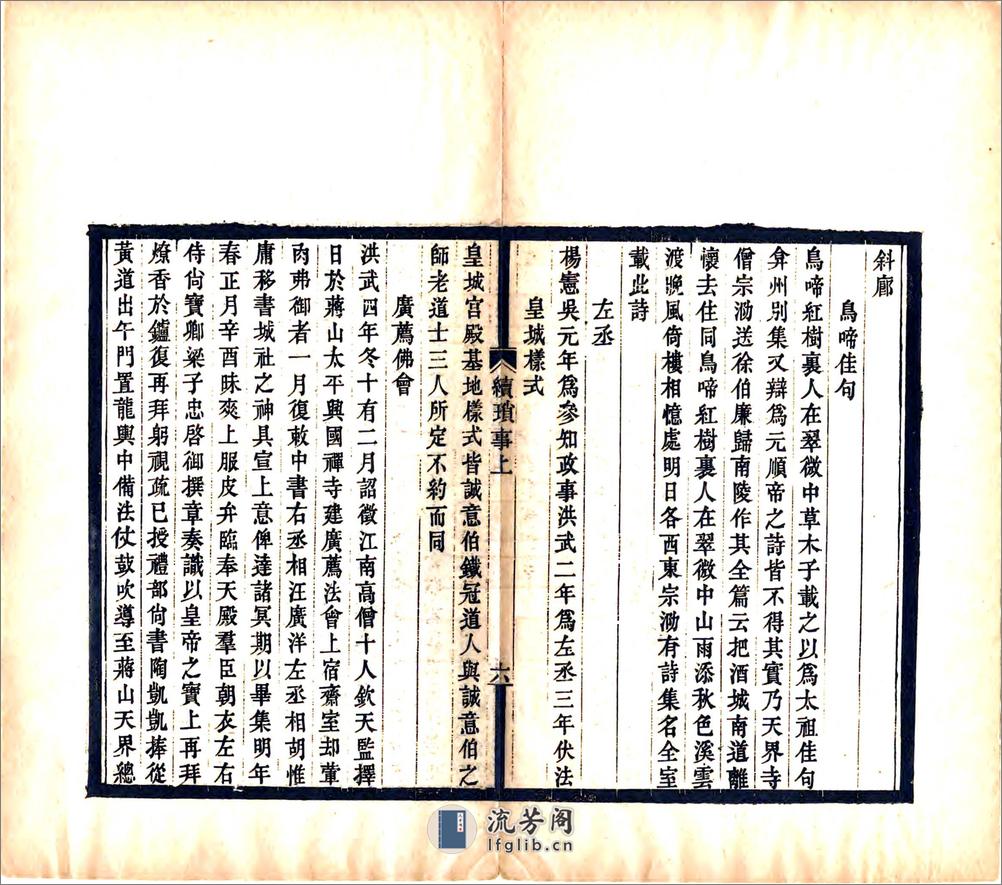 斜廊
鳥啼佳句
鳥啼紅樹裏人在翠微中草木子載之以爲太祖佳句
弇州别集又辯爲元順帝之詩皆不得其實乃天界寺
僧宗泐送徐伯廉歸南陵作其全篇云把酒城南道離
懷去住同鳥啼紅樹裏人在翠微中山雨添秋色溪雲
渡晚風倚樓相憶處明日各西東宗泐有詩集名全室
載此詩
左丞
楊憲吳元年爲參知政事洪武二年爲左丞三年伏法
皇城樣式
續瑣事上
六
皇城宫殿基地樣式皆誠意伯鐵冠道人與誠意伯之
師老道士三人所定不約而同
廣薦佛會
洪武四年冬十有二月詔徵江南高僧十人欽天監擇
日於蔣山太平興國禪寺建廣薦法會上宿齋室却葷
肉弗御者一月復敕中書右丞相汪廣洋左丞相胡惟
庸移書城社之神具宣上意俾達諸冥期以畢集明年
春正月辛酉昧爽上服皮弁臨奉天殿羣臣朝衣左右
侍尙寶卿梁子忠啓御撰章奏識以皇帝之寶上再拜
燎香於鑪復再拜躬視疏已授禮部尙書陶凱凱捧從
黃道出午門置龍輿中備法仗鼓吹導至蔣山天界總
流芳阁
lfglib.cn